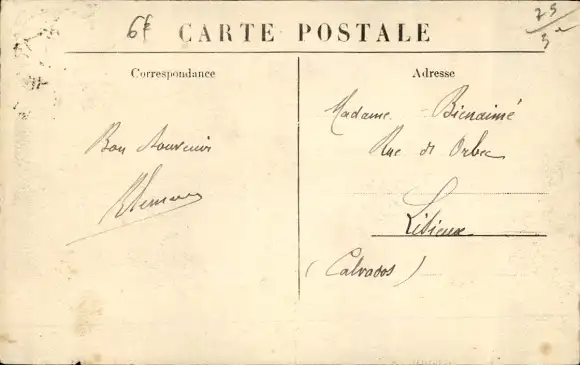 6f
CARTE POSTALE
75
Correspondance
Adresse
Bon Souvenir
Madame Bienaimé
Rue de Orbec
Lisieux
(Calvados)